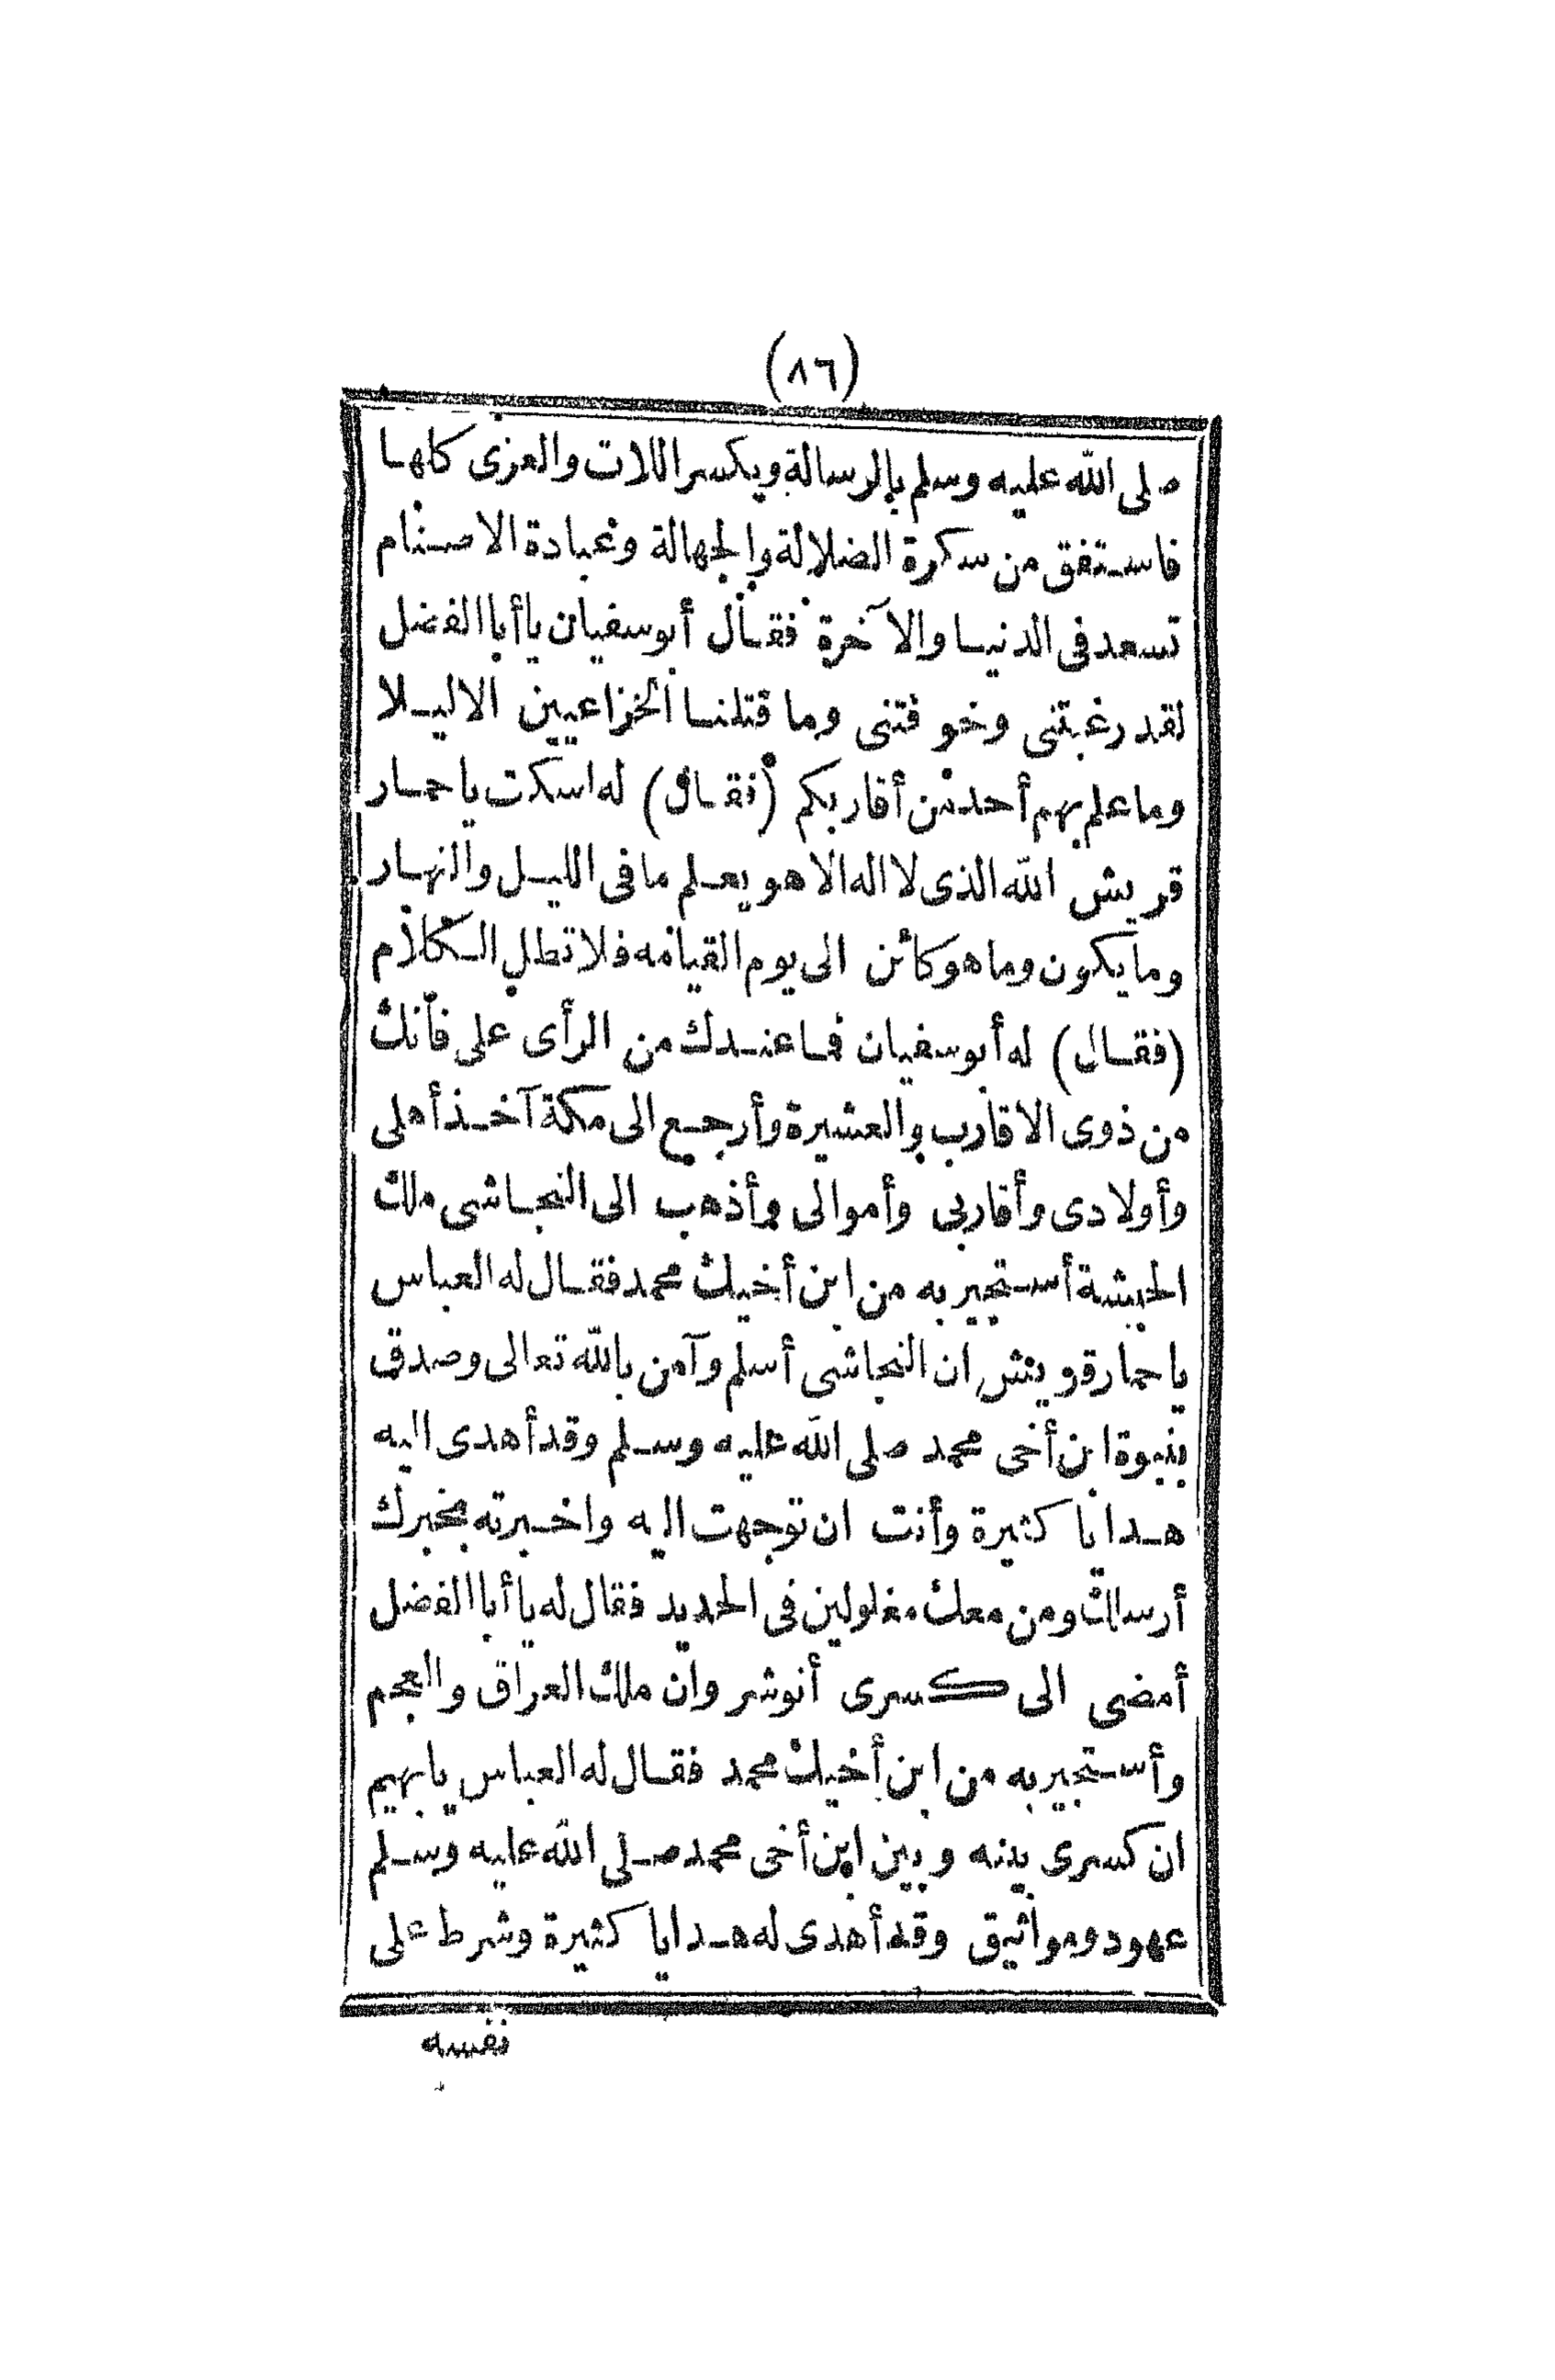 (٨٦)
صلى الله عليه وسلم بالرسالة ويكسر اللات والعزى كلها
فاستفق من سكرة الضلالة والجهالة وعبادة الاصنام
تسعد فى الدنيا والآخرة فقال أبو سفيان يا أبا الفضل
لقد رغبتنى وخوفتنى وما قتلنا الخزاعيين الا ليلا
وما علم بهم أحد من أقاربكم (فقال) له اسكت يا حمار
قريش الله الذى لا اله الا هو يعلم ما فى الليل والنهار
وما يكون وما هو كائن الى يوم القيامه فلا تطل الكلام
(فقال) له أبو سفيان فما عندك من الرأى على فأنك
من ذوى الاقارب والعشيرة وأرجع الى مكة آخذ أهلى
وأولادى وأقاربى وأموالى وأذهب الى النجاشى ملك
الحبشة أستجير به من ابن أخيك محمد فقال له العباس
يا حمار قريش ان النجاشى أسلم وآمن بالله تعالى وصدق
بنبوة ابن أخى محمد صلى الله عليه وسلم وقد أهدى اليه
هدايا كثيرة وأنت ان توجهت اليه واخبرته بخبرك
أرسلك ومن معك مغلولين فى الحديد فقال له يا أبا الفضل
أمضى الى كسرى أنوشروان ملك العراق والعجم
وأستجير به من ابن أخيك محمد فقال له العباس يا بهيم
ان كسرى بينه وبين ابن أخى محمد صلى الله عليه وسلم
عهود ومواثيق وقد أهدى له هدايا كثيرة وشرط على
نفسه